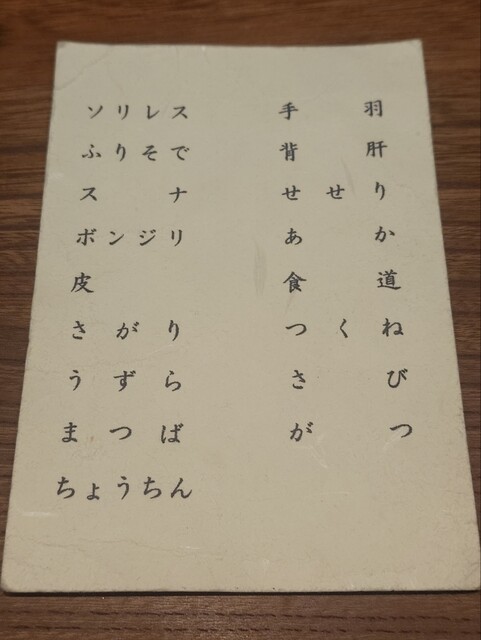 ソリレス
ふりそで
スナ
ボンジリ
皮
さがり
うずら
まつば
ちょうちん
手羽
背肝
せせり
あか
食道
つくね
さび
がつ